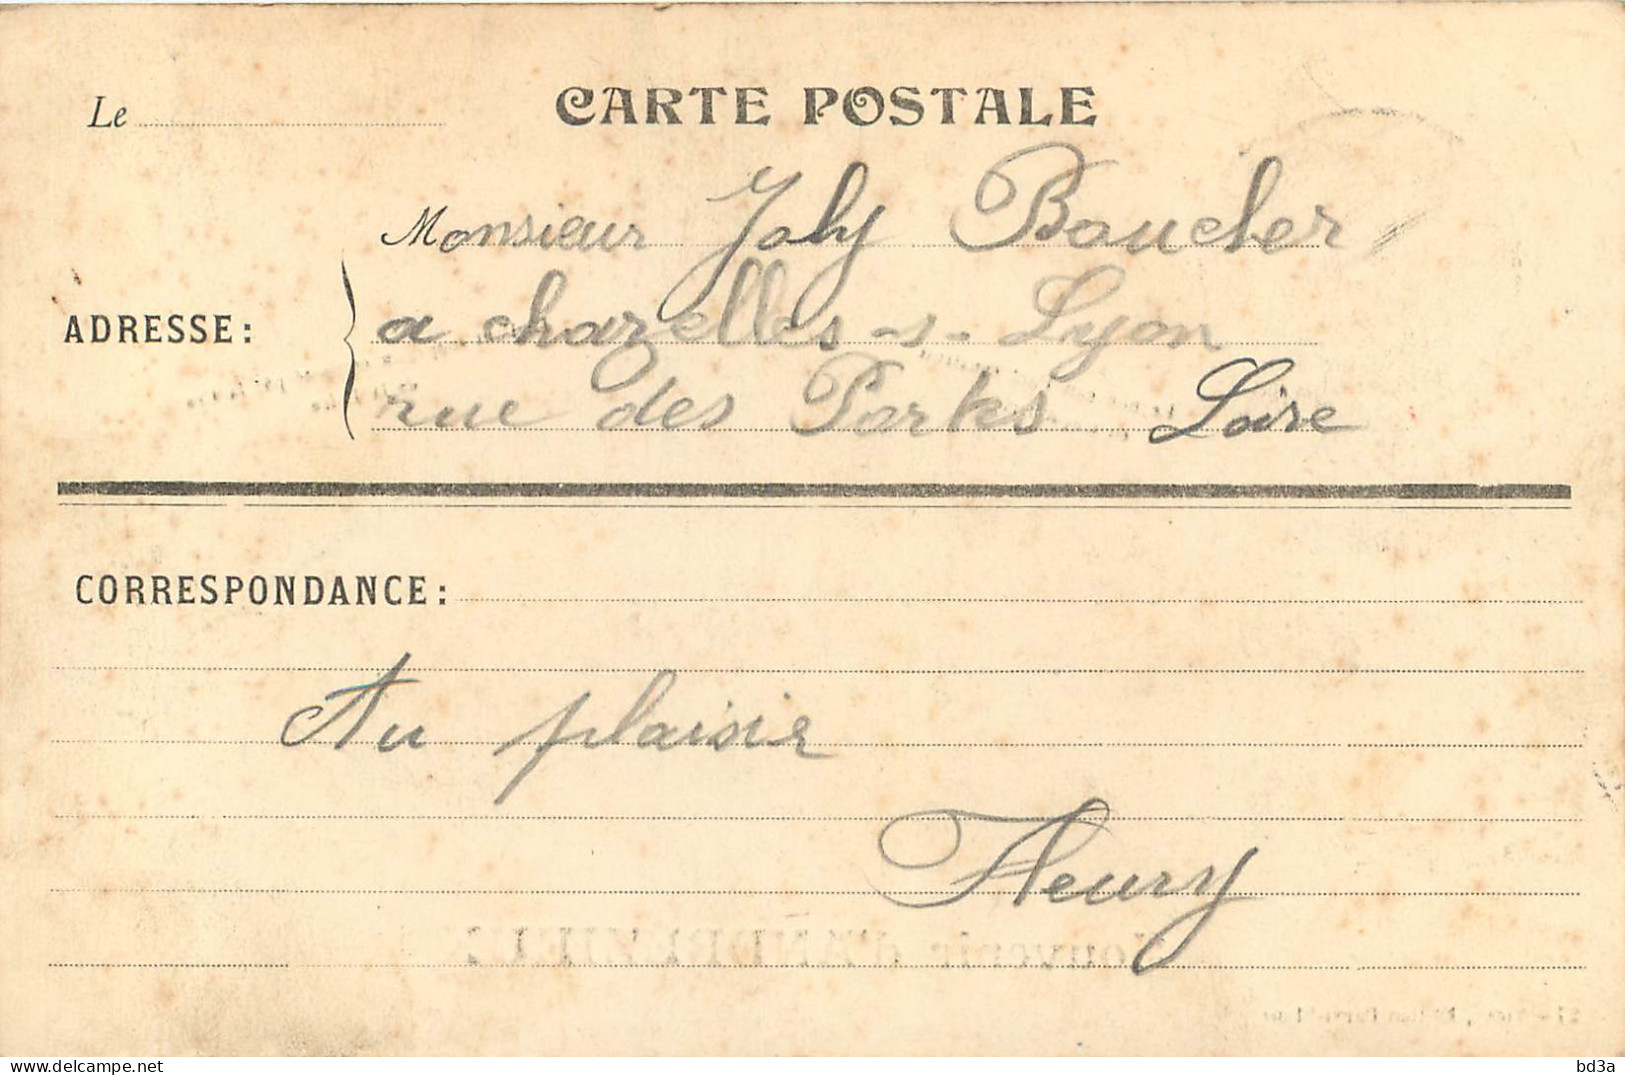 CARTE POSTALE
Le
Monsieur Joly Boucher
ADRESSE: a chazelles-s-Lyon
rue des Parks Loire
CORRESPONDANCE:
Au plaisir
Fleury
Souvenir d'ANDREZIEUX
bd3a